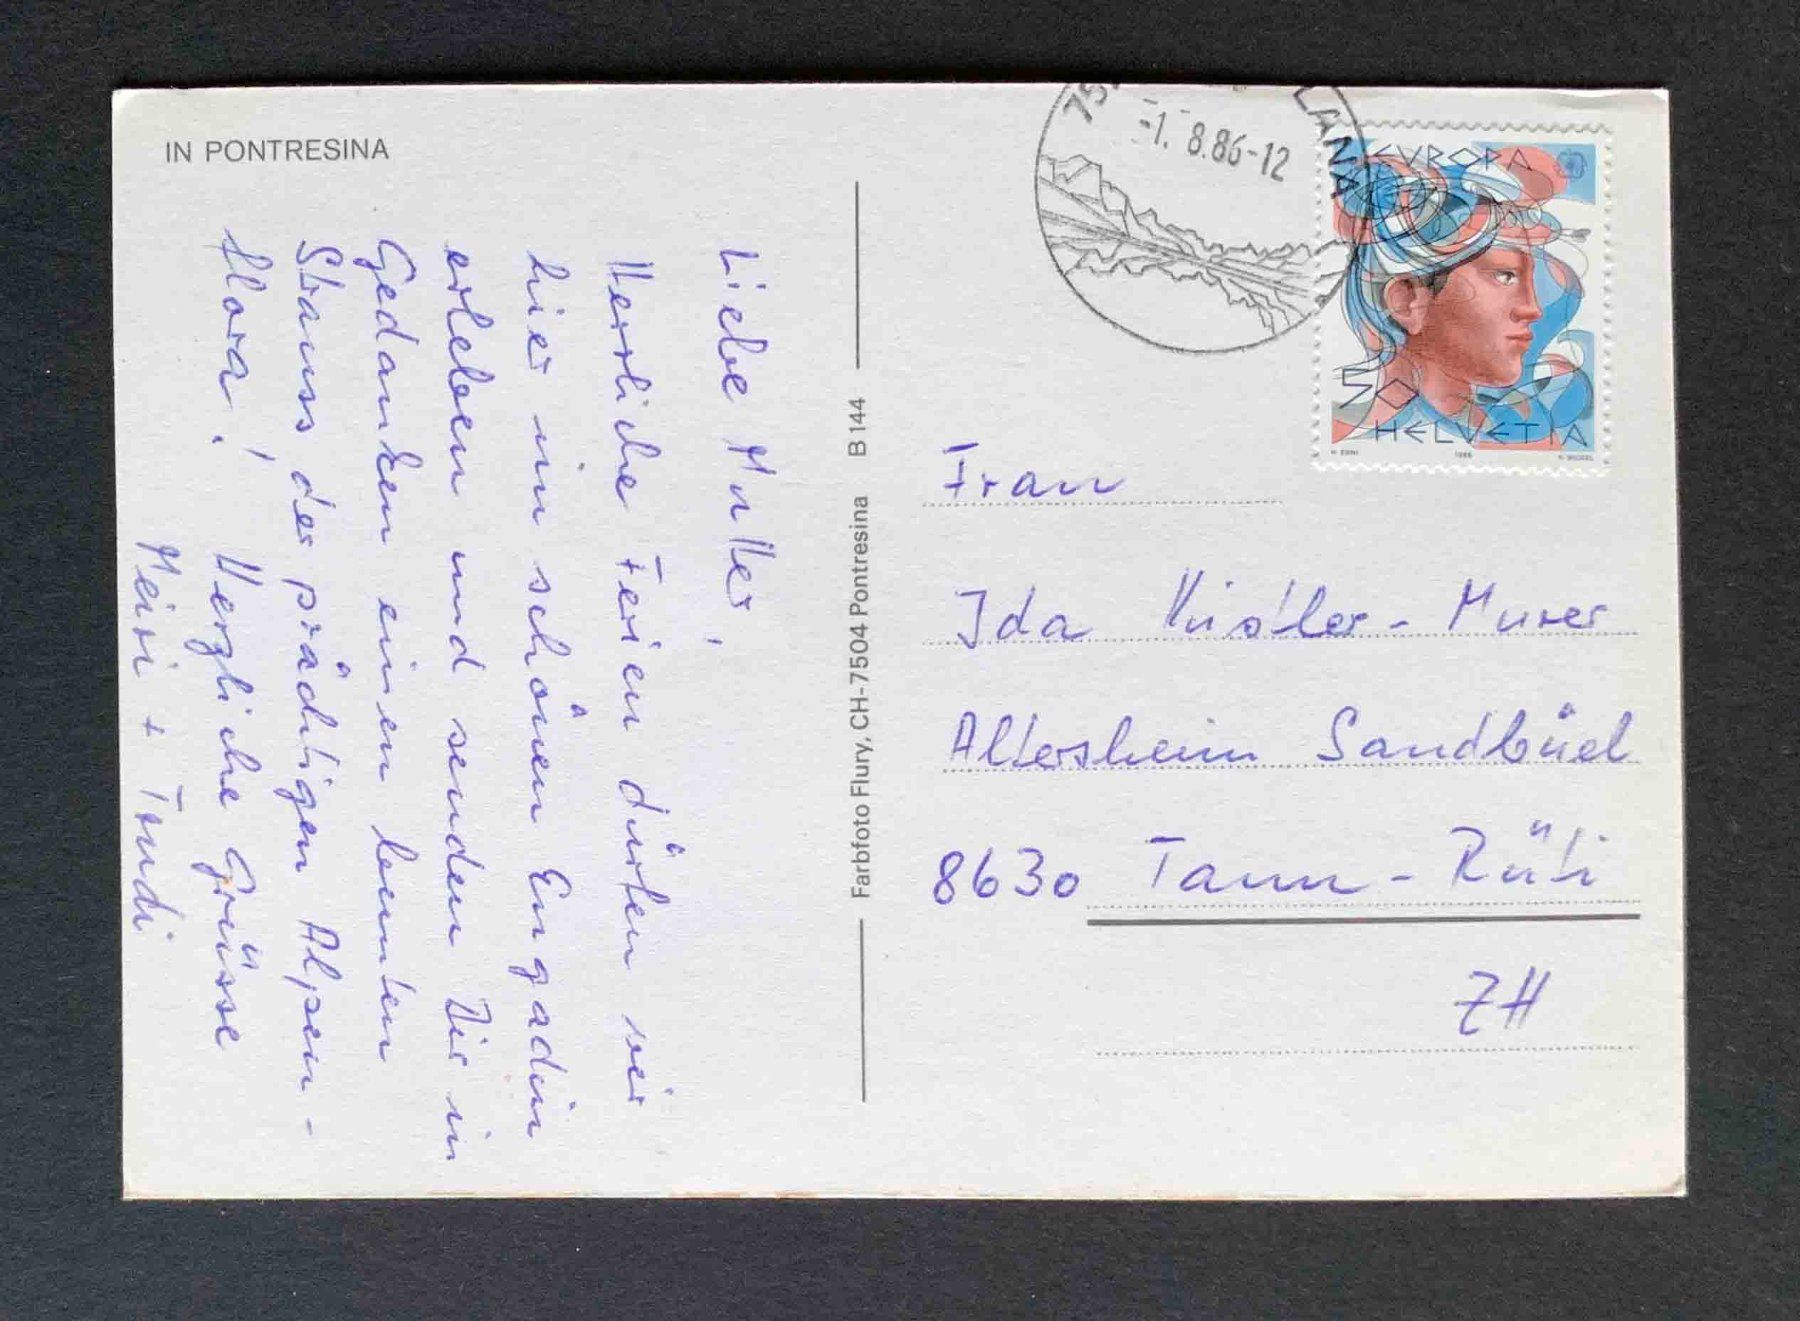 IN PONTRESINA
Liebe Mutter,
Herrliche Ferien dürfen wir
hier im schönen Engadin
erleben und senden Dir in
Gedanken einen bunten
Strauss der prächtigen Alpen-
flora! Herzliche Grüsse
Meiri + Trudi
Farbfoto Flury, CH-7504 Pontresina B 144
-1. 8.86-12
EVROPA
50
HELVETIA
H. ERNI 1986
Frau
Ida Kistler-Murer
Altersheim Sandbüel
8630 Tann-Rüti
ZH